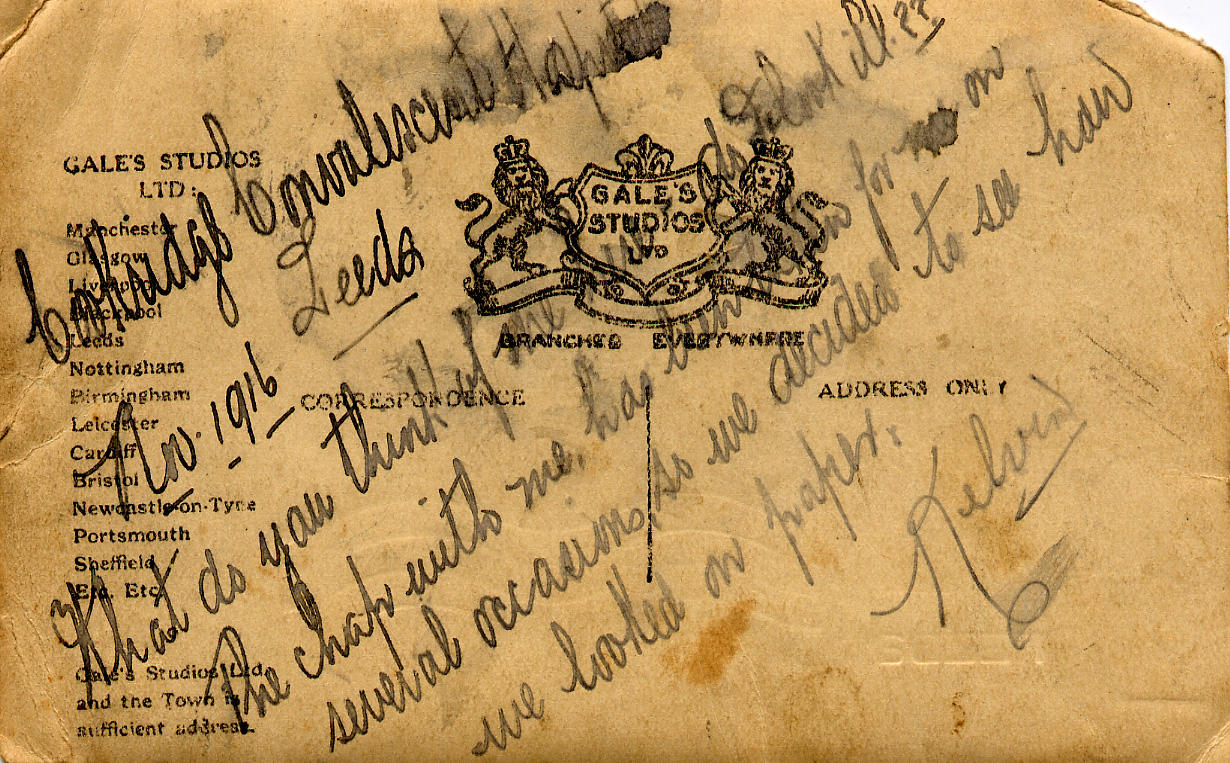 GALE'S STUDIOS
LTD:
Manchester
Glasgow
Liverpool
Blackpool
Leeds
Nottingham
Birmingham
Leicester
Cardiff
Bristol
Newcastle-on-Tyne
Portsmouth
Sheffield
Etc. Etc.
Gale's Studios Ltd.
and the Town is
sufficient address.
GALE'S
STUDIOS
LTD
BRANCHES EVERYWHERE
CORRESPONDENCE
ADDRESS ONLY
Convalescent
Leeds
Nov. 1916
What do you think of me do I look ill.??
The chap with me, has been taken for me on
several occasions, so we decided to see how
we looked on paper.
Kelvin